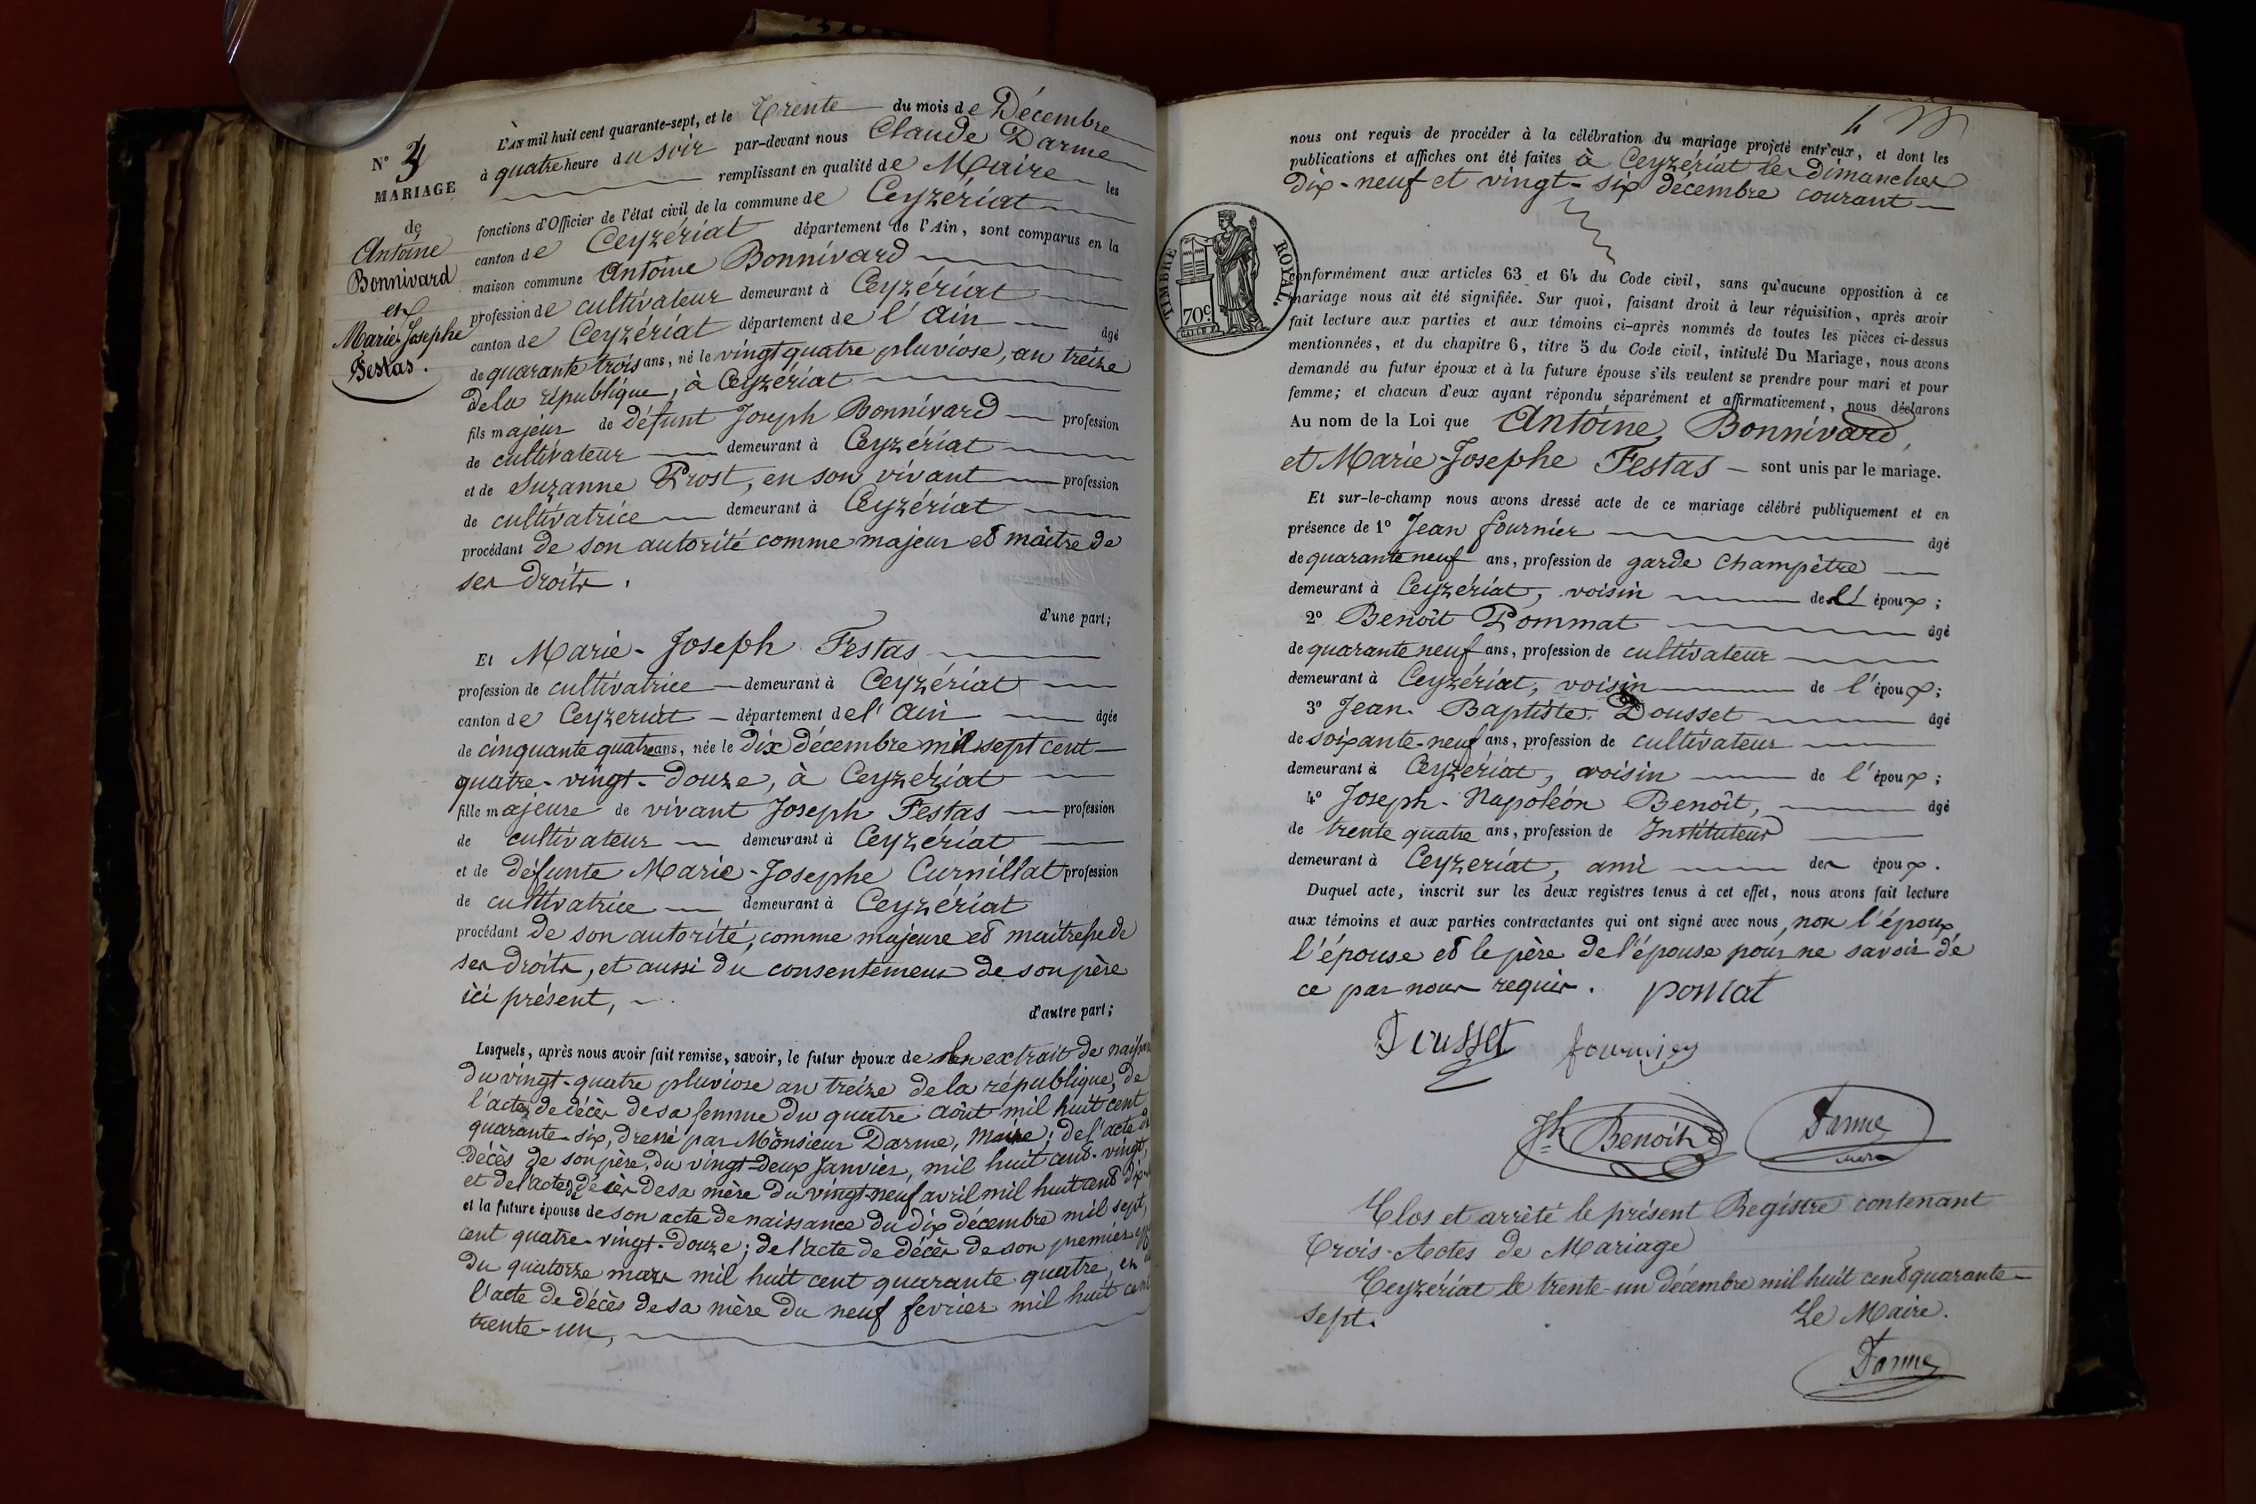 L'An mil huit cent quarante-sept, et le Trente du mois de Décembre
à quatre heure du soir par-devant nous Claude Darme
remplissant en qualité de Maire les
fonctions d'Officier de l'état civil de la commune de Ceyzériat
canton de Ceyzériat département de l'Ain, sont comparus en la
maison commune Antoine Bonnivard
profession de cultivateur demeurant à Ceyzériat
canton de Ceyzériat département de l'Ain âgé
de quarante trois ans, né le vingt quatre pluviose, an treize
de la république, à Ceyzériat
fils majeur de défunt Joseph Bonnivard profession
de cultivateur demeurant à Ceyzériat
et de Suzanne Prost, en son vivant profession
de cultivatrice demeurant à Ceyzériat
procédant de son autorité comme majeur et maître de
ses droits.
d'une part;
Et Marie-Joseph Festas
profession de cultivatrice demeurant à Ceyzériat
canton de Ceyzeriat département de l'Ain âgée
de cinquante quatre ans, née le dix décembre mil sept cent
quatre-vingt-douze, à Ceyzériat
fille majeure de vivant Joseph Festas profession
de cultivateur demeurant à Ceyzériat
et de défunte Marie-Josephe Curnillat profession
de cultivatrice demeurant à Ceyzériat
procédant de son autorité, comme majeure et maitresse de
ses droits, et aussi du consentement de son père
ici présent,
d'autre part;
Lesquels, après nous avoir fait remise, savoir, le futur époux de son extrait de
du vingt-quatre pluviose an treize de la république, de
l'acte de décès de sa femme du quatre août mil huit cent
quarante-six, dressé par Monsieur Darme, Maire; de l'acte de
décès de son père, du vingt-deux Janvier, mil huit cent-vingt,
et de l'acte de décès de sa mère du vingt-neuf avril mil huit cent
et la future épouse de son acte de naissance du dix décembre mil sept
cent quatre-vingt-douze; de l'acte de décès de son premier
du quatorze mars mil huit cent quarante quatre,
l'acte de décès de sa mère du neuf fevrier mil huit cent
trente-un,
N° 3
MARIAGE
de
Antoine
Bonnivard
et
Marie-Josephe
Festas.
4
nous ont requis de procéder à la célébration du mariage projeté entr'eux, et dont les
publications et affiches ont été faites à Ceyzériat les dimanches
dix-neuf et vingt-six décembre courant
TIMBRE ROYAL.
70c.
conformément aux articles 63 et 64 du Code civil, sans qu'aucune opposition à ce
mariage nous ait été signifiée. Sur quoi, faisant droit à leur réquisition, après avoir
fait lecture aux parties et aux témoins ci-après nommés de toutes les pièces ci-dessus
mentionnées, et du chapitre 6, titre 5 du Code civil, intitulé Du Mariage, nous avons
demandé au futur époux et à la future épouse s'ils veulent se prendre pour mari et pour
femme; et chacun d'eux ayant répondu séparément et affirmativement, nous déclarons
Au nom de la Loi que Antoine Bonnivard,
et Marie-Josephe Festas sont unis par le mariage.
Et sur-le-champ nous avons dressé acte de ce mariage célébré publiquement et en
présence de 1° Jean fournier âgé
de quarante neuf ans, profession de garde Champêtre
demeurant à Ceyzériat, voisin de l' époux;
2° Benoît Pommat âgé
de quarante neuf ans, profession de cultivateur
demeurant à Ceyzériat, voisin de l'époux;
3° Jean-Baptiste Dousset âgé
de soixante-neuf ans, profession de cultivateur
demeurant à Ceyzériat, voisin de l'époux;
4° Joseph-Napoléon Benoît, âgé
de trente quatre ans, profession de Instituteur
demeurant à Ceyzeriat, ami des époux.
Duquel acte, inscrit sur les deux registres tenus à cet effet, nous avons fait lecture
aux témoins et aux parties contractantes qui ont signé avec nous, non l'époux
l'épouse et le père de l'épouse pour ne savoir de
ce par nous requis. pomat
Dousset fournier
Jh Benoit Darme
maire
Clos et arrêté le présent Registre contenant
Trois-Actes de Mariage
Ceyzériat le trente-un décembre mil huit cent quarante-
sept.
Le Maire.
Darme